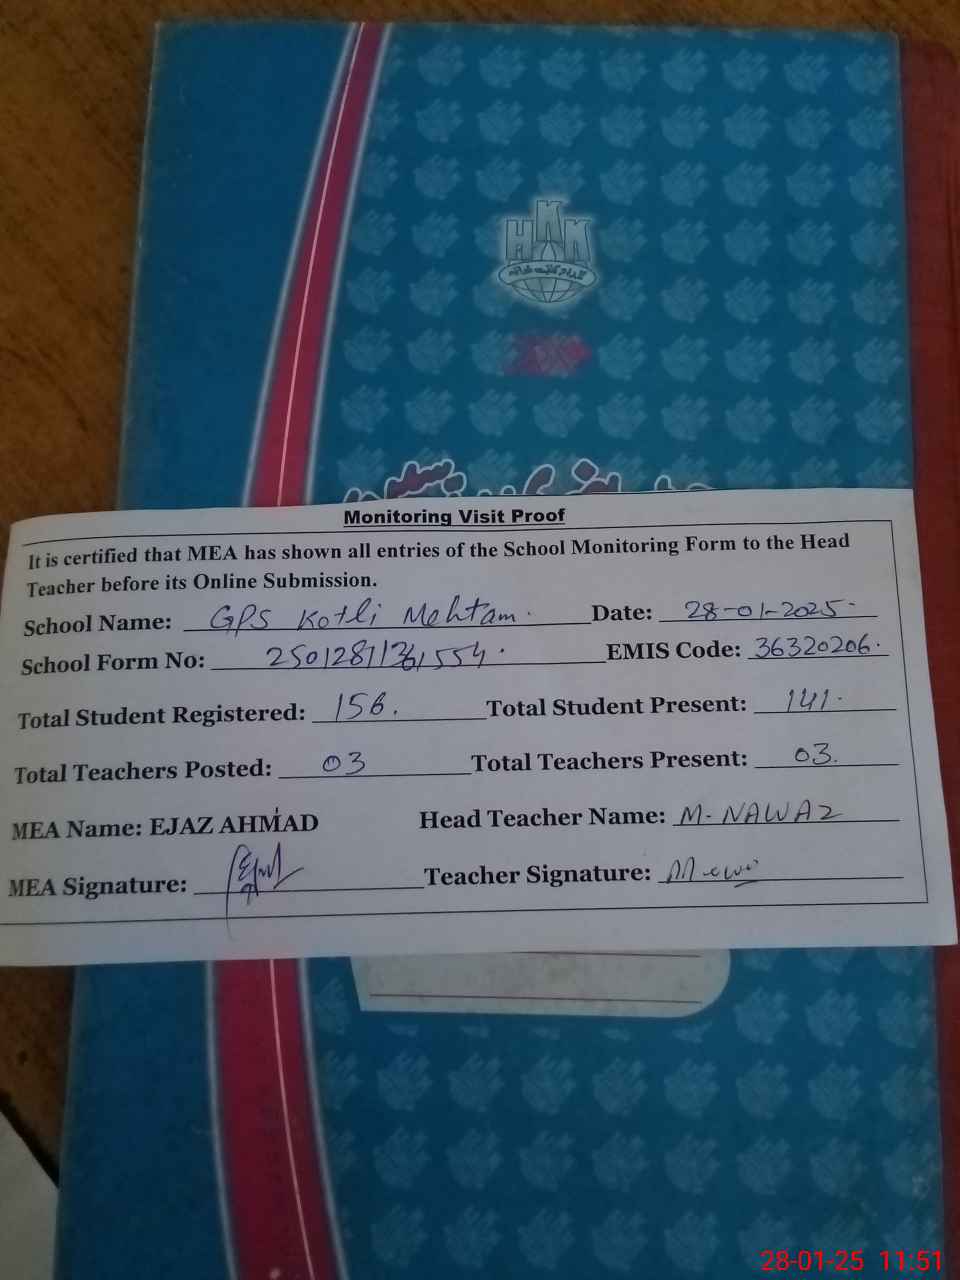 HKK
Monitoring Visit Proof
It is certified that MEA has shown all entries of the School Monitoring Form to the Head
Teacher before its Online Submission.
School Name: GPS Kotli Mehtam. Date: 28-01-2025.
School Form No: EMIS Code: 36320206.
Total Student Registered: 156. Total Student Present: 141.
Total Teachers Posted: 03 Total Teachers Present: 03.
MEA Name: EJAZ AHMAD Head Teacher Name: M. NAWAZ
MEA Signature: Teacher Signature:
28-01-25 11:51